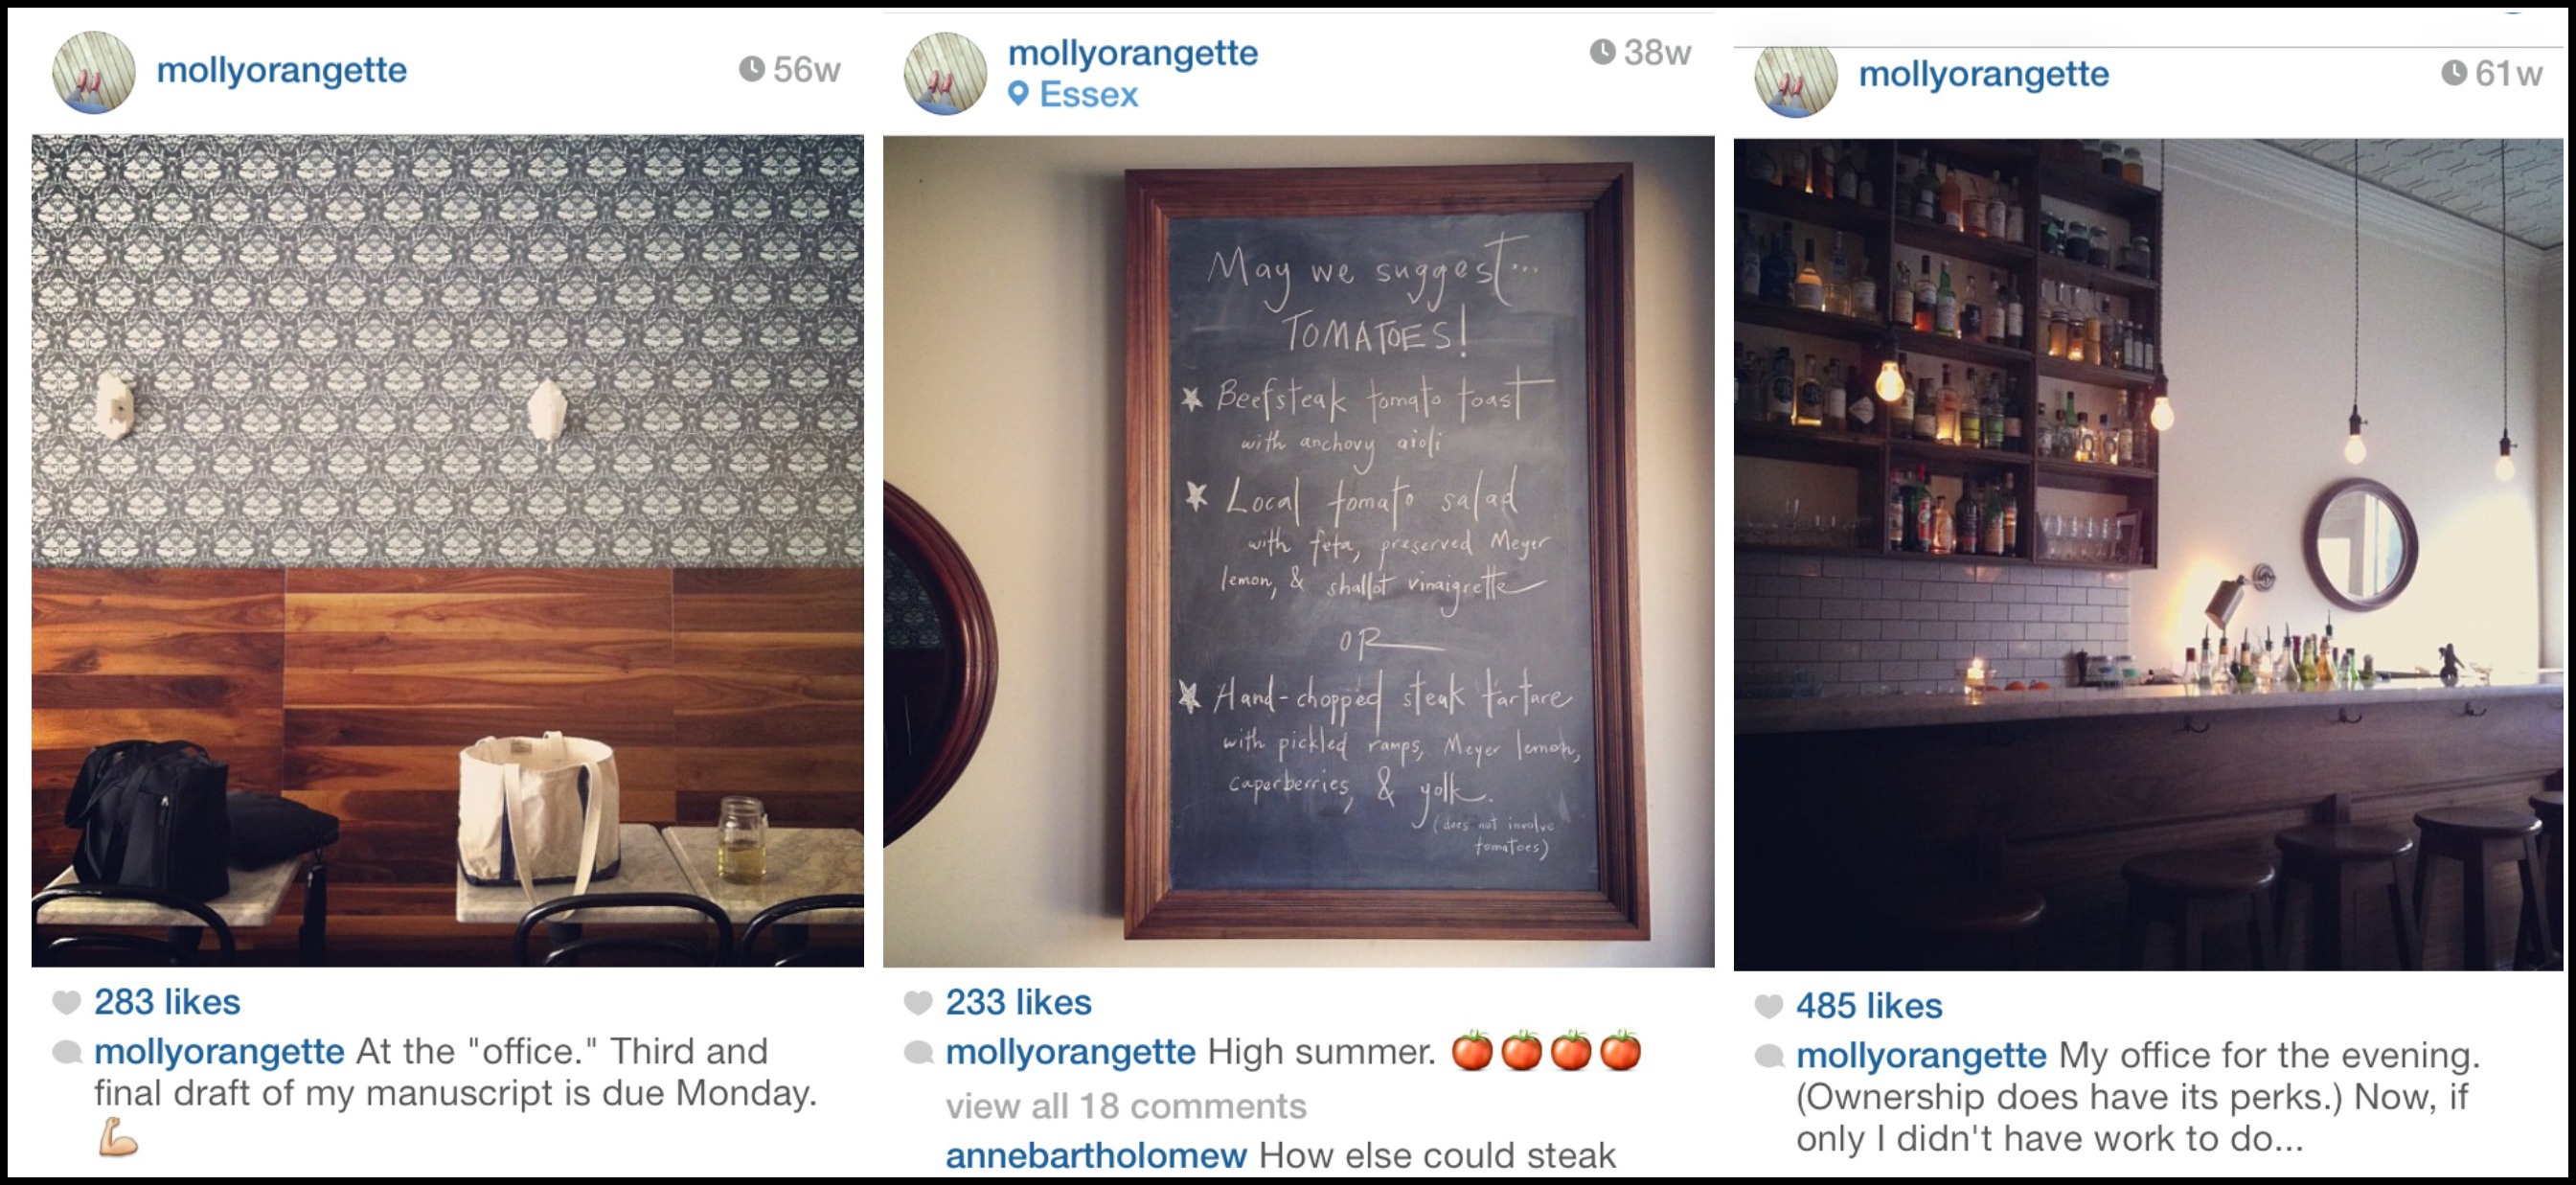 mollyorangette
56w
283 likes
mollyorangette At the "office." Third and
final draft of my manuscript is due Monday.
💪🏼
mollyorangette
38w
Essex
May we suggest...
TOMATOES!
Beefsteak tomato toast
with anchovy aioli
Local tomato salad
with feta, preserved Meyer
lemon, & shallot vinaigrette
OR
Hand-chopped steak tartare
with pickled ramps, Meyer lemon,
caperberries, & yolk.
(does not involve
tomatoes)
233 likes
mollyorangette High summer. 🍅🍅🍅🍅
view all 18 comments
annebartholomew How else could steak
mollyorangette
61w
485 likes
mollyorangette My office for the evening.
(Ownership does have its perks.) Now, if
only I didn't have work to do...